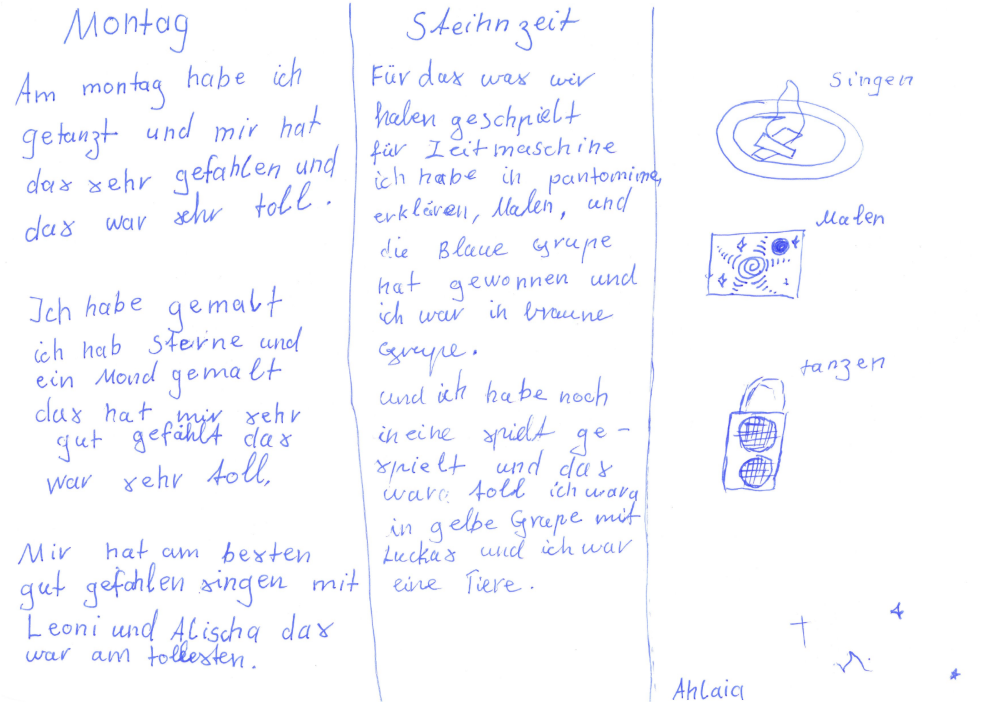 Montag
Am montag habe ich
getanzt und mir hat
das sehr gefahlen und
das war sehr toll.
Ich habe gemalt
ich hab Sterne und
ein Mond gemalt
das hat mir sehr
gut gefählt das
war sehr toll.
Mir hat am besten
gut gefahlen singen mit
Leoni und Alischa das
war am tollesten.
Steihnzeit
Für das was wir
haben geschpielt
für Zeitmaschine
ich habe in pantomime,
erklären, Malen, und
die Blaue Grupe
hat gewonnen und
ich war in braune
Grupe.
und ich habe noch
in eine spielt ge-
spielt und das
ware told ich ware
in gelbe Grupe mit
Luckas und ich war
eine Tiere.
Singen
Malen
tanzen
Ahlaia